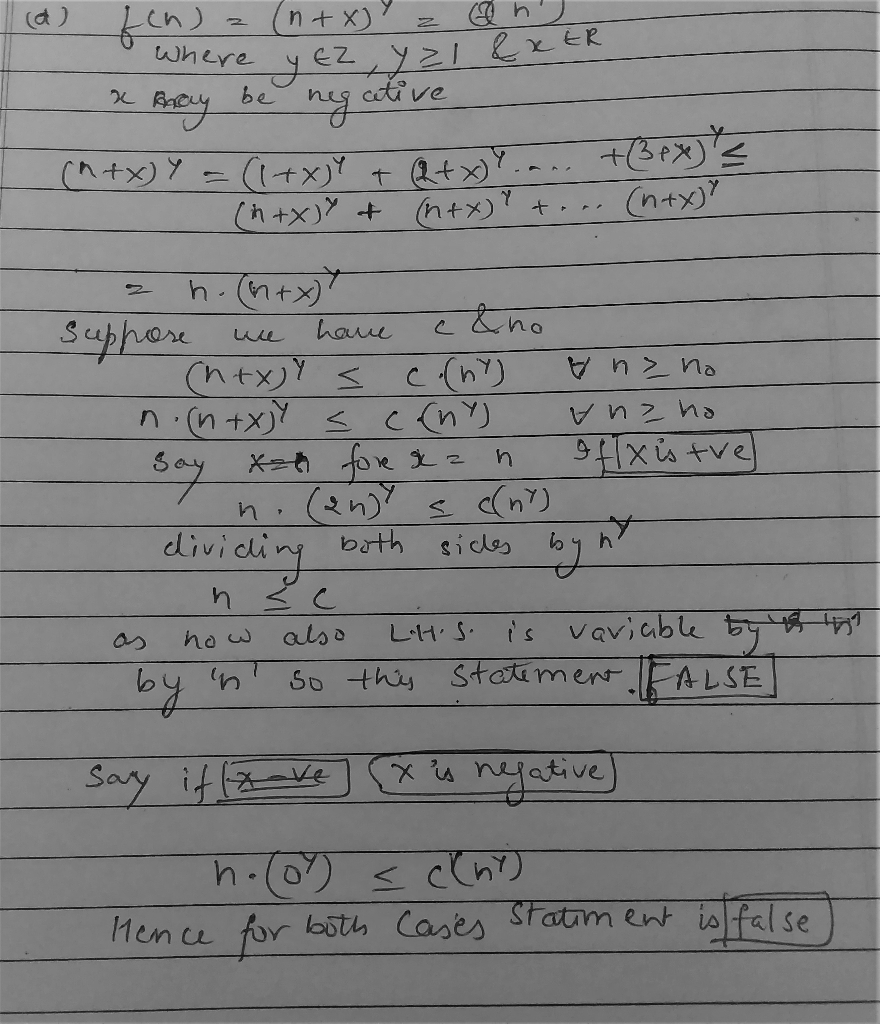 (d) f(n) = (n+x)^y = n^y)
where y ∈ Z, y ≥ 1 & x ∈ R
x may be negative
(n+x)^y = (1+x)^y + (2+x)^y .... + (3+x)^y ≤
(n+x)^y + (n+x)^y + ... (n+x)^y
= n.(n+x)^y
Suppose we have c & n0
(n+x)^y ≤ c.(n^y) ∀ n ≥ n0
n.(n+x)^y ≤ c (n^y) ∀ n ≥ n0
Say x=n for x = n If x is +ve
n. (2n)^y ≤ c(n^y)
dividing both sides by n^y
n ≤ c
as now also L.H.S. is variable by 'n'
by 'n' so this statement. FALSE
Say if x -ve (x is negative)
n.(0^y) ≤ c(n^y)
Hence for both Cases Statment is false